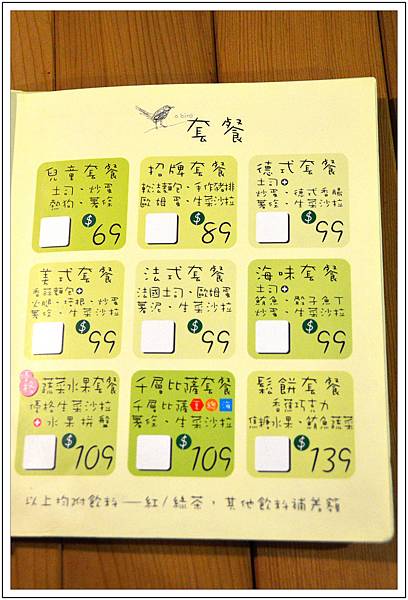 a bird
套餐
兒童套餐
土司、炒蛋
熱狗、薯條
$ 69
招牌套餐
軟法麵包、手作豬排
歐姆蛋、生菜沙拉
$ 89
德式套餐
土司+
炒蛋、德式香腸
薯條、生菜沙拉
$ 99
美式套餐
香蒜麵包+
火腿、培根、炒蛋
薯條、生菜沙拉
$ 99
法式套餐
法國土司、歐姆蛋
薯泥、生菜沙拉
$ 99
海味套餐
土司+
鮪魚、骰子魚丁
炒蛋、生菜沙拉
$ 99
蔬菜水果套餐
優格生菜沙拉
+水果拼盤
$ 109
千層比薩套餐
千層比薩
薯條、生菜沙拉
$ 109
鬆餅套餐
香蕉巧克力
焦糖水果、鮪魚蔬菜
$ 139
以上均附飲料—紅/綠茶，其他飲料補差額